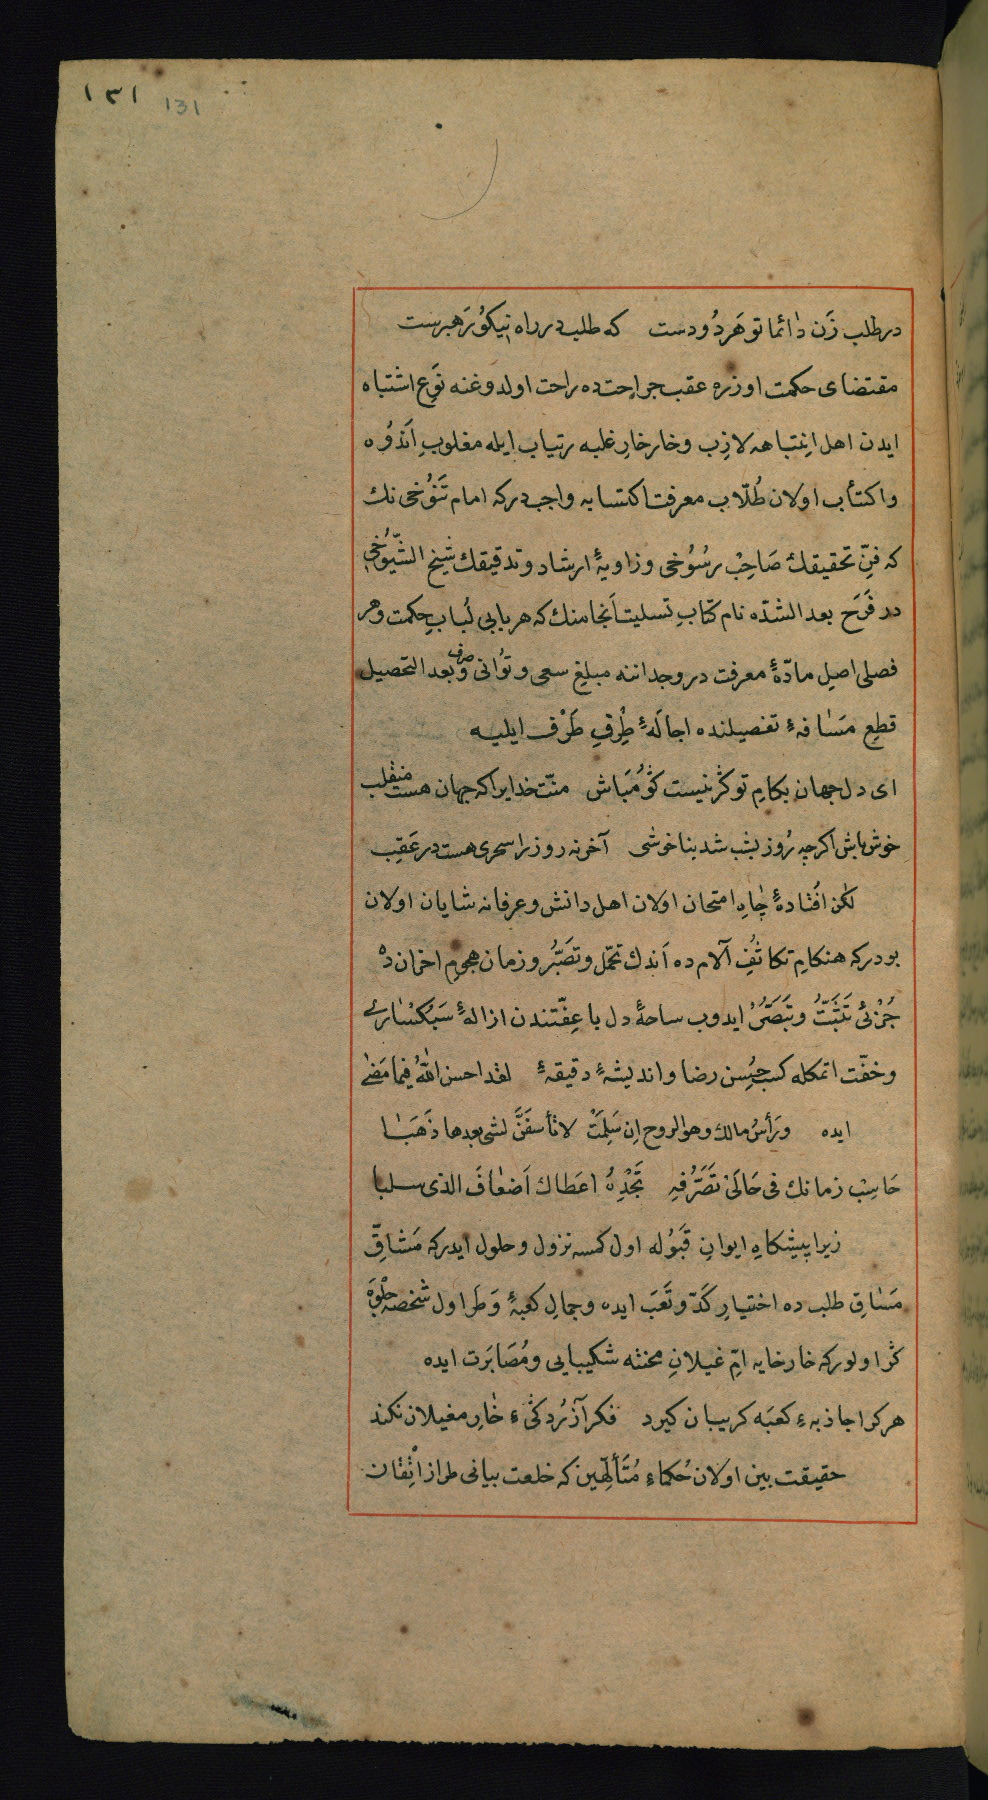 ١٣١ 131
در طلب زَن دٰائما تو هَر دُو دست که طلب در راه نیکو رَهبرست
مقتضای حکمت اوزره عقب جراحت ده راحت اولدوغنه نَوعِ اشتباه
ایدن اهل اِنتباهه لازِب وخارخارِ غلبه رتیاب ایله مغلوبِ اَندُوه
واکتأب اولان طُلّاب معرفت اکتسابه واجب در که امام تَنوُخی نك
که فنِّ تحقیقك صَاحِبْ رسُوُخی وزاویهٔ ارشاد وتدقیقك شیخ الشّیُوخی
در فَرَح بعد الشدّه نام کتابِ تسلیت اَنجامنك که هر بابی لُبابِ حکمت وهر
فصلی اصیل مادّهٔ معرفت در وجداننه مبلغِ سعی وتُوانی صرف وبعد التحصیل
قطعِ مَسٰافهٔ تفصیلنده اجالَهٔ طِرْفِ طَرْف ایلیه
ای دل جهان بکامِ تو کرنیست کوُمَباش منّت خدایرا که جهان هست منقلب
خوش باش اکرچه رُوز بشب شد بناخوشی آخر نه روز را سحری هست در عَقِب
لٰکن افُتادهٔ چٰاهِ امتحان اولان اهل دانش وعرفانه شایان اولان
بودر که هنکامِ تکاثُفِ آلام ده اَندك تحمّل وتصَبُّر وزمان هجومِ احزان ده
جُزئی تَثبّتُ وتبَصّر ایدوب ساحهٔ دل باعِفّتندن ازالهٔ سَبُکسٰاری
وخفّت اتمکله کسبِ حُسن رضا واندیشهٔ دقیقهٔ لقد احسن اللّٰهُ فیما مَضیٰ
ایده ورَأسُ مالك وهو الروح اِن سَلِمَتْ لا تأسفَنَّ لشی بعدها ذَهَبٰا
حَاسِبْ زمانك فی حَالَیْ تَصَرُّفِهِ تَجِدْهُ اعَطاك اَضعٰافَ الذی سلبا
زیرا پیشکاهِ ایوانِ قَبَوُله اول کمسه نزول وحلول ایدر که مَشاقِّ
مَسٰاقِ طلب ده اختیارِ کَدّ وتَعَب ایده وجمالِ کعبهٔ وَطَر اول شخصه جلْوَه
کر اولور که خارخایه امِّ غیلانِ محنته شکیبایی ومُصَابَرت ایده
هر کرا جاذبهءِ کعبَه کریبان کیرد فکر آزرُدکیٔ خٰارِ مغیلان نکند
حقیقت بین اولان حُکماءِ مُتَألِّهین که خلعت بیانی طراز اتْقٰان